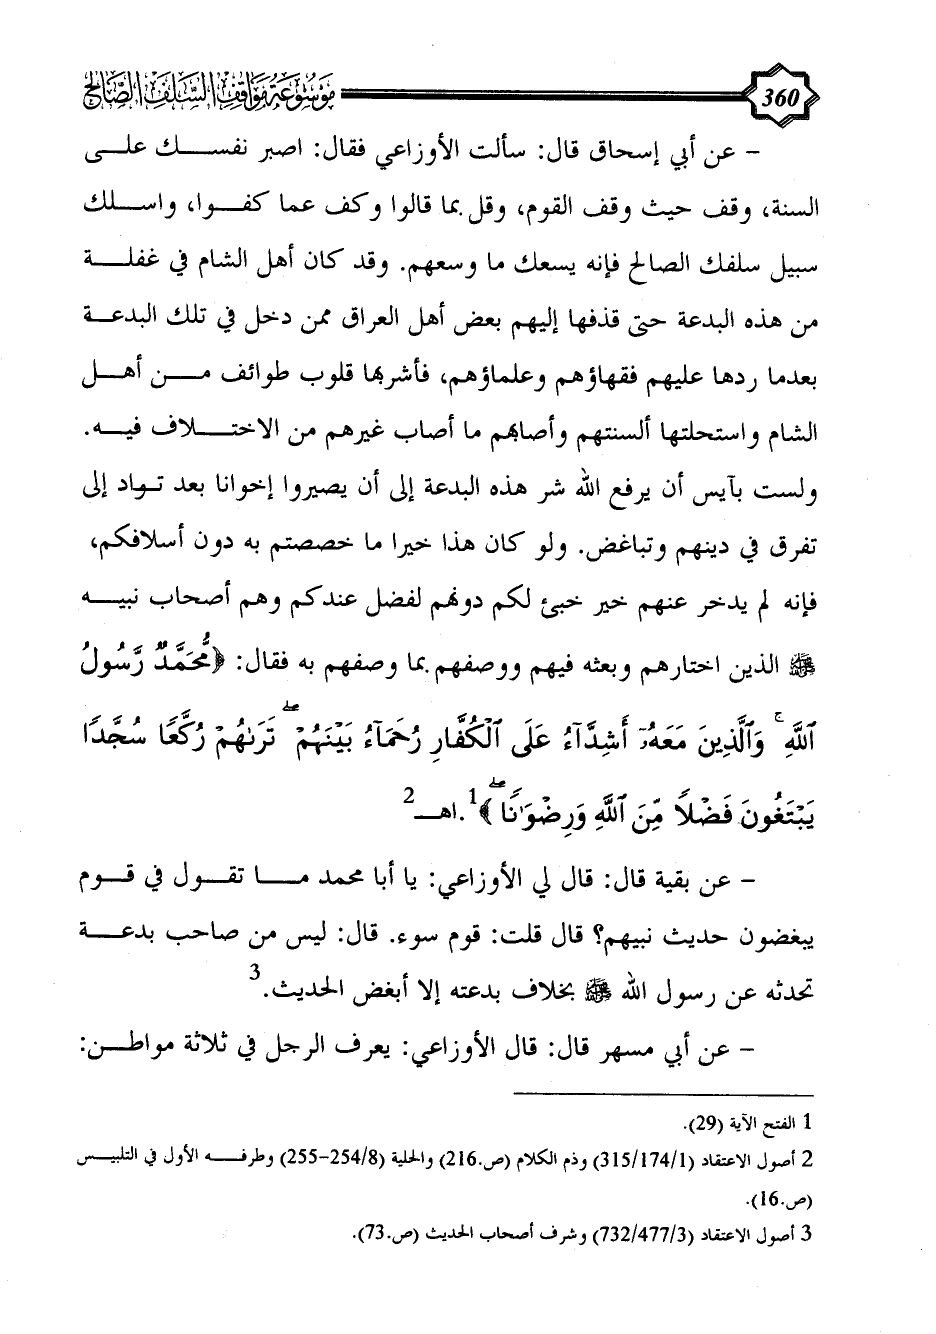 موسوعة مواقف السلف الصالح
360
- عن أبي إسحاق قال: سألت الأوزاعي فقال: اصبر نفسك على
السنة، وقف حيث وقف القوم، وقل بما قالوا وكف عما كفوا، واسلك
سبيل سلفك الصالح فإنه يسعك ما وسعهم. وقد كان أهل الشام في غفلة
من هذه البدعة حتى قذفها إليهم بعض أهل العراق ممن دخل في تلك البدعة
بعدما ردها عليهم فقهاؤهم وعلماؤهم، فأشربها قلوب طوائف من أهل
الشام واستحلتها ألسنتهم وأصابهم ما أصاب غيرهم من الاختلاف فيه.
ولست بآيس أن يرفع الله شر هذه البدعة إلى أن يصيروا إخوانا بعد تواد إلى
تفرق في دينهم وتباغض. ولو كان هذا خيرا ما خصصتم به دون أسلافكم،
فإنه لم يدخر عنهم خير خبئ لكم دونهم لفضل عندكم وهم أصحاب نبيه
ﷺ الذين اختارهم وبعثه فيهم ووصفهم بما وصفهم به فقال: ﴿مُّحَمَّدٌ رَّسُولُ
ٱللَّهِ ۚ وَٱلَّذِينَ مَعَهُۥٓ أَشِدَّآءُ عَلَى ٱلْكُفَّارِ رُحَمَآءُ بَيْنَهُمْ ۖ تَرَىٰهُمْ رُكَّعًا سُجَّدًا
يَبْتَغُونَ فَضْلًا مِّنَ ٱللَّهِ وَرِضْوَٰنًا ۖ﴾1.اهـ2
- عن بقية قال: قال لي الأوزاعي: يا أبا محمد ما تقول في قوم
يبغضون حديث نبيهم؟ قال قلت: قوم سوء. قال: ليس من صاحب بدعة
تحدثه عن رسول الله ﷺ بخلاف بدعته إلا أبغض الحديث.3
- عن أبي مسهر قال: قال الأوزاعي: يعرف الرجل في ثلاثة مواطن:
1 الفتح الآية (29).
2 أصول الاعتقاد (315/174/1) وذم الكلام (ص.216) والحلية (254/8-255) وطرفه الأول في التلبيس
(ص.16).
3 أصول الاعتقاد (732/477/3) وشرف أصحاب الحديث (ص.73).